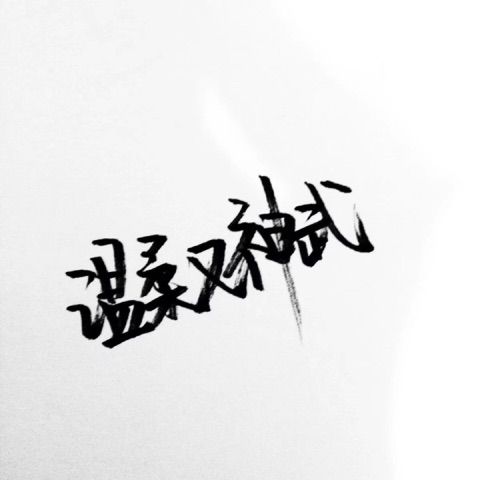 温柔又神武